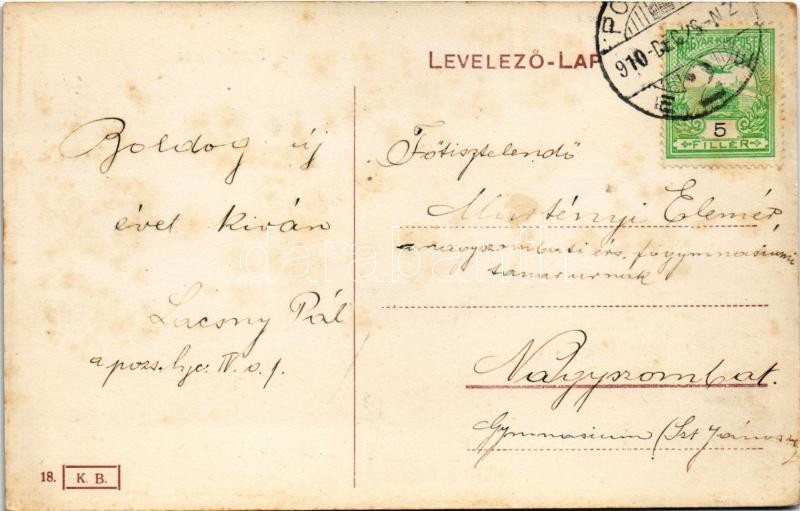 LEVELEZŐ-LAP
910-DEC
MAGYAR KIR. POSTA
5
FILLÉR
Boldog új
évet kíván
Lacsny Pál
a pozs. lyc. IV. o. f.
Főtisztelendő
Elemér
a nagyszombati érs. főgymnasiumi
tanár urnak
Nagyszombat.
Gymnasium (Szt János
18. K. B.
darabanth